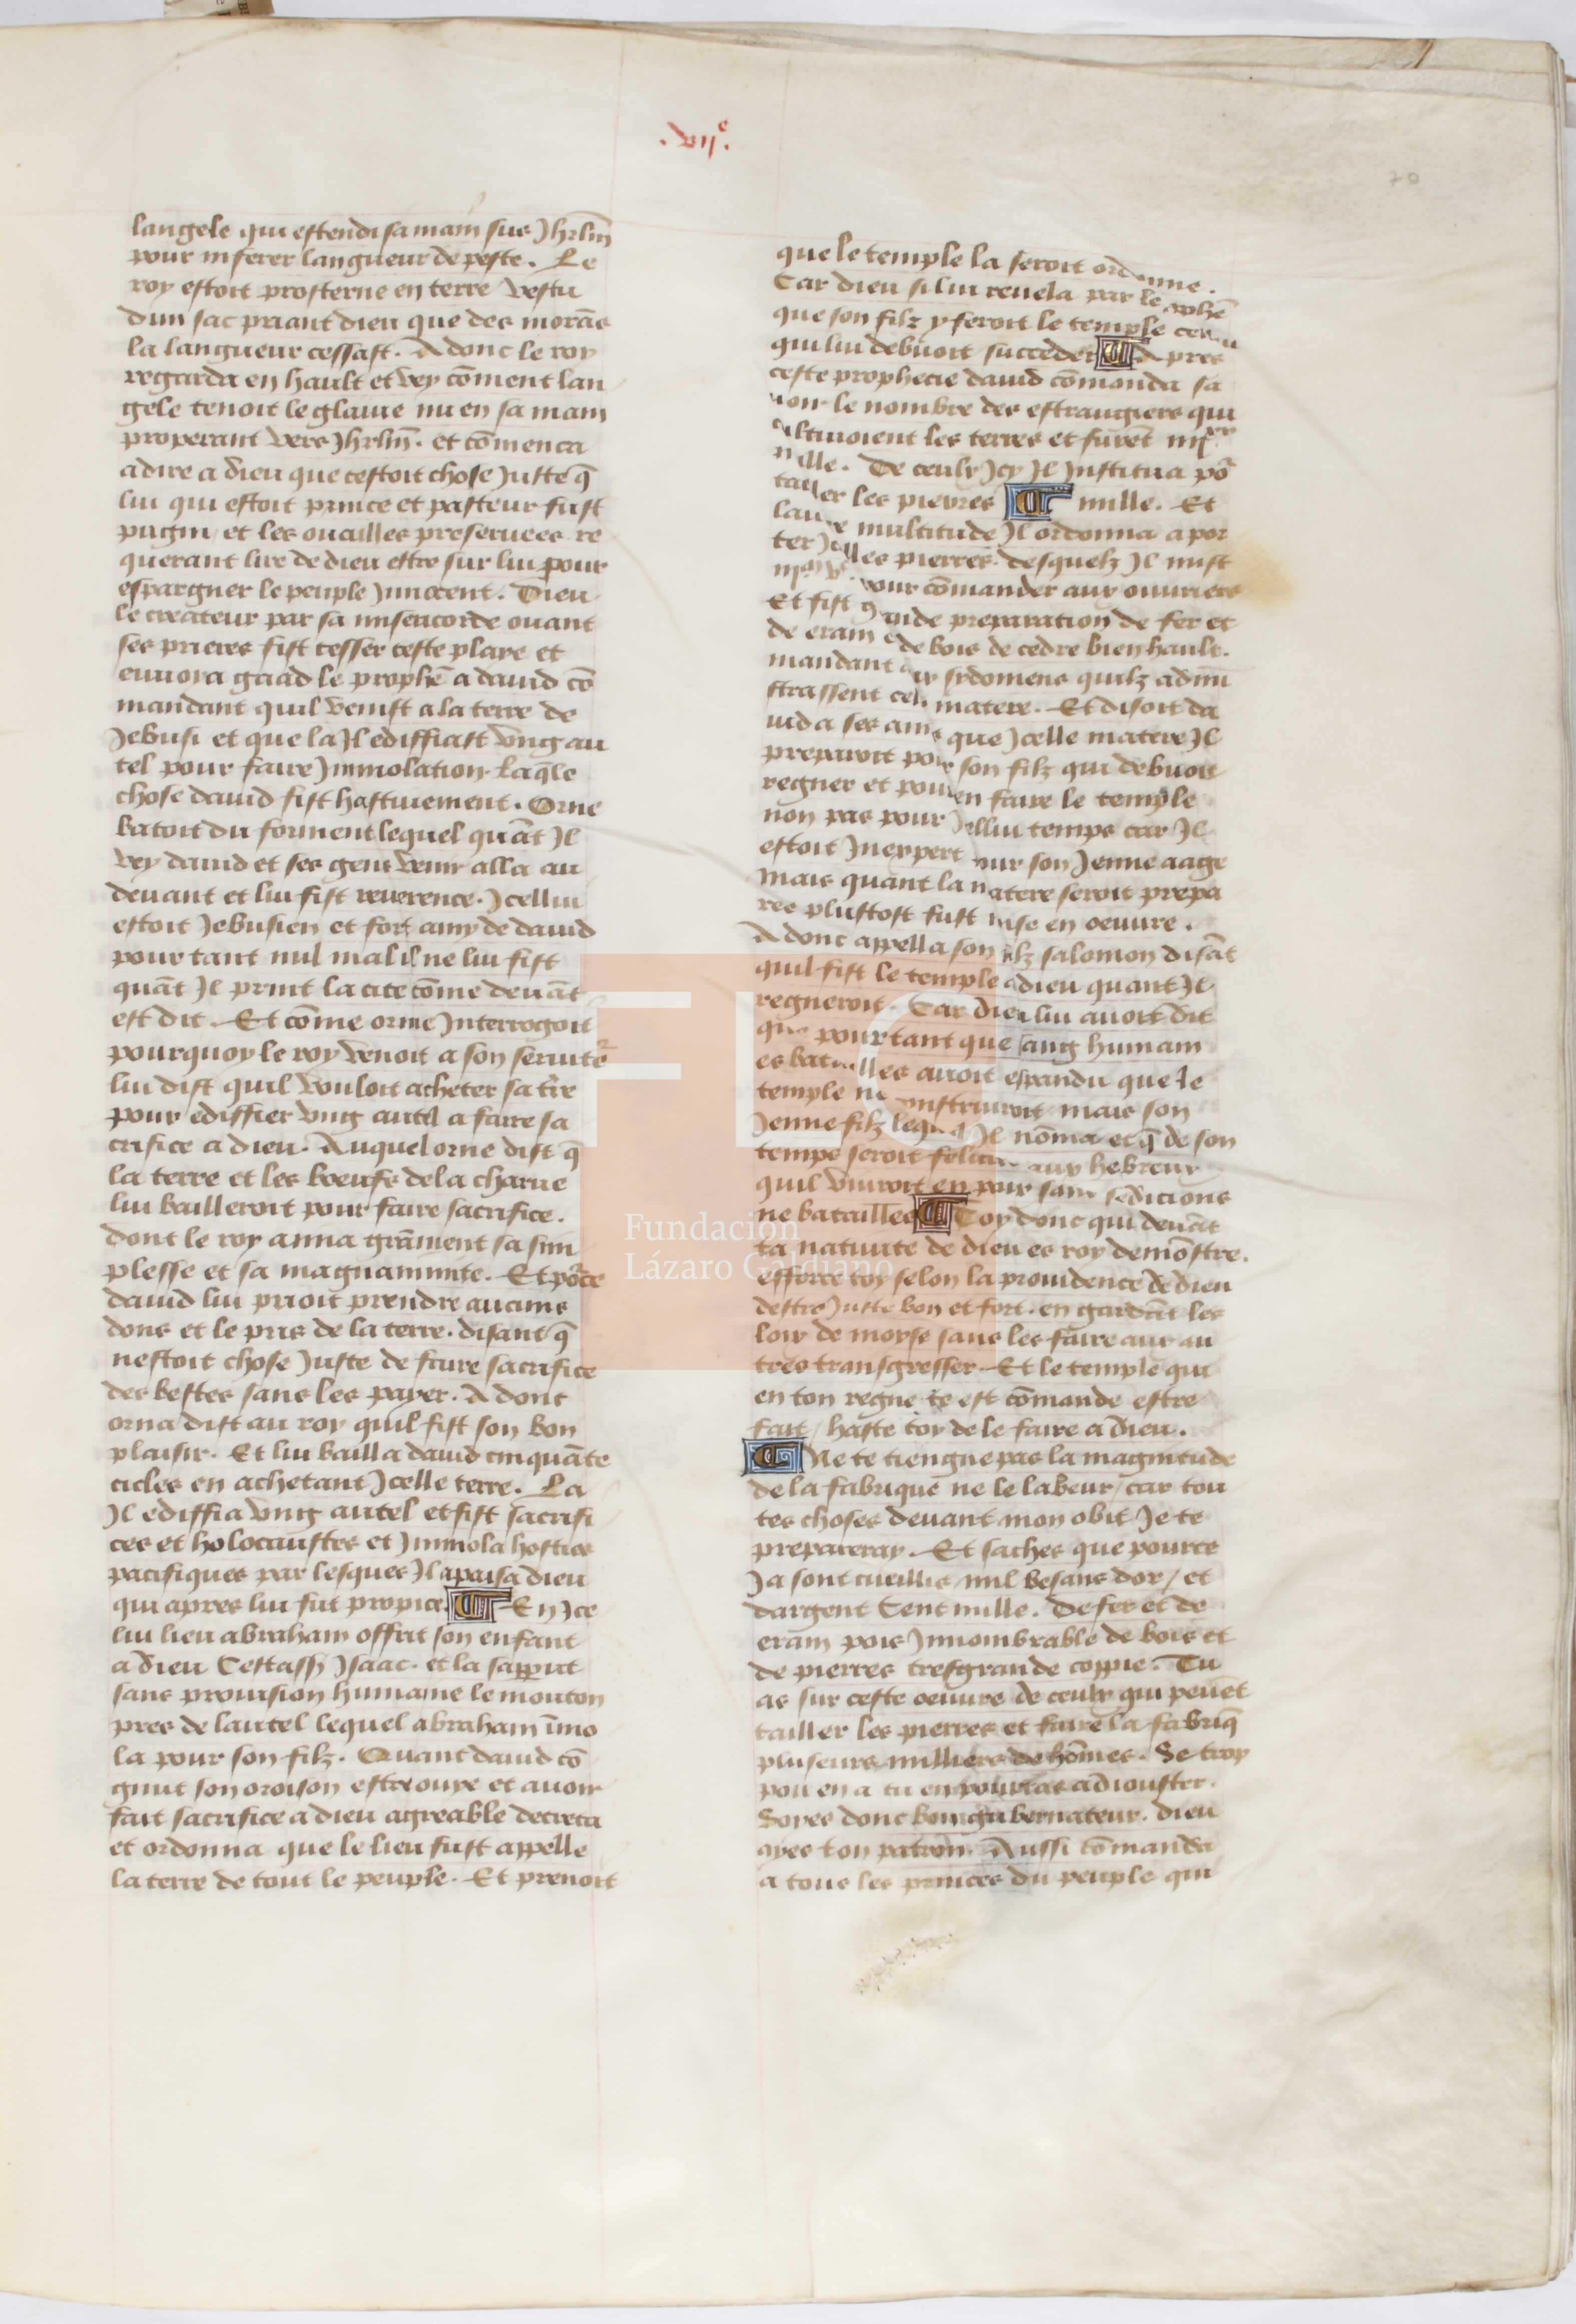 .vijᵉ.
70
langele qui estendi sa main sus Jhrlm̄
pour inferer langueur de peste. Le
roy estoit prosterne en terre vestu
dun sac priant dieu que des morās
la langueur cessast. Adonc le roy
regarda en hault et vey cōment lan
gele tenoit le glaiue nu en sa main
properant vers Jhrlm̄. et cōmenca
a dire a dieu que cestoit chose Juste q̄
lui qui estoit prince et pasteur fust
pugni et les ouailles preseruees re
querant lire de dieu estre sur lui pour
espargner le peuple Jnnocent. Dieu
le createur par sa misericorde ouant
ses prieres fist cesser ceste playe et
enuoya gaad le prophē a dauid cō
mandant quil venist a la terre de
Jebusi et que la Jl ediffiast vng au
tel pour faire Jnmolation. Laq̄le
chose dauid fist hastiuement. Orne
batoit du forment lequel quāt Jl
vey dauid et ses gens venir alla au
deuant et lui fist reuerence. Jcellui
estoit Jebusien et fort amy de dauid
pour tant nul mal il ne lui fist
quāt Jl print la cite cōme deuāt
est dit. Et cōme orne Jnterrogoit
pourquoy le roy venoit a son seruitēr
lui dist quil vouloit acheter sa tr̄e
pour ediffier vng autel a faire sa
crifice a dieu. Auquel orne dist q̄
la terre et les boeufs de la charue
lui bailleroit pour faire sacrifice.
dont le roy anna grāment sa sim
plesse et sa magnanimite. Et pōrce
dauid lui prioit prendre aucuns
dons et le pris de la terre. disant q̄
nestoit chose Juste de faire sacrifice
des bestes sans les payer. Adonc
orna dist au roy quil fist son bon
plaisir. Et lui bailla dauid cinquāte
cicles en achetant Jcelle terre. La
Jl ediffia vng autel et fist sacrifi
ces et holocaustes et Jnmola hosties
pacifiques par lesques Jl apaisa dieu
qui apres lui fut propice. En Jce
lui lieu abraham offrit son enfant
a dieu Cestass̄ Jsaac. et la sapparut
sans prouision humaine le mouton
pres de lautel lequel abraham īmo
la pour son filz. Quant dauid cō
gnut son oroison estre ouye et auoir
fait sacrifice a dieu agreable decreta
et ordonna que le lieu fust appelle
la terre de tout le peuple. Et prenoit
que le temple la seroit ordonne.
Car dieu si lui reuela par le prophē
que son filz y feroit le temple
qui lui debuoit succeder A pres
ceste prophecie dauid cōmanda sa
uoir le nombre des estrangiers qui
cultiuoient les terres et furēt iiijˣˣ
mille. De ceulx Jcy Jl Jnstitua pōr
tailler les pierres mille. Et
lautre multitude Jl ordonna a por
ter Jcelles pierres. desquelz Jl mist
pour cōmander aux ouuriers
Et fist grande preparation de fer et
de eram et de bois de cedre bien hault.
mandant aux sydomens quilz admi
strassent celle matere. Et disoit da
uid a ses amis que Jcelle matere Jl
preparoit pour son filz qui debuoit
regner et pour en faire le temple
non pas pour Jcellui temps car Jl
estoit Jnexpert pour son Jenne aage
mais quant la matere seroit prepa
ree plustost fust mise en oeuure.
Adonc appella son filz salomon disāt
quil fist le temple a dieu quant Jl
regneroit. Car dieu lui auoit dit
que pourtant que sang humain
es batailles auoit espandu que le
temple ne construiroit mais son
Jenne filz lequel Jl nōma et q̄ de son
temps seroit felicite aux hebreux
quil viuroit en paix sans sedicions
ne batailles Toy donc qui deuāt
ta natiuite de dieu es roy demōstre.
efforce toy selon la prouidence de dieu
destre Juste bon et fort. en gardāt les
loix de moyse sans les faire aux au
tres transgresser. Et le temple qui
en ton regne te est cōmande estre
fait / haste toy de le faire a dieu.
Ne te tiengne pas la magnitude
de la fabrique ne le labeur / car tou
tes choses deuant mon obit Je te
prepareray. Et saches que pource
Ja sont cueillis mil besans dor / et
dargent Cent mille. De fer et de
eram pois Jnnombrable de bois et
de pierres tresgrande coppie. Tu
as sur ceste oeuure de ceulx qui peuēt
tailler les pierres et faire la fabriq̄
pluseurs milliers de hōmes. Se trop
pou en a tu en pourras adiouster.
Soyes donc bon gubernateur. dieu
ayes ton patron. Aussi cōmanda
a tous les princes du peuple qui
Fundación
Lázaro Galdiano